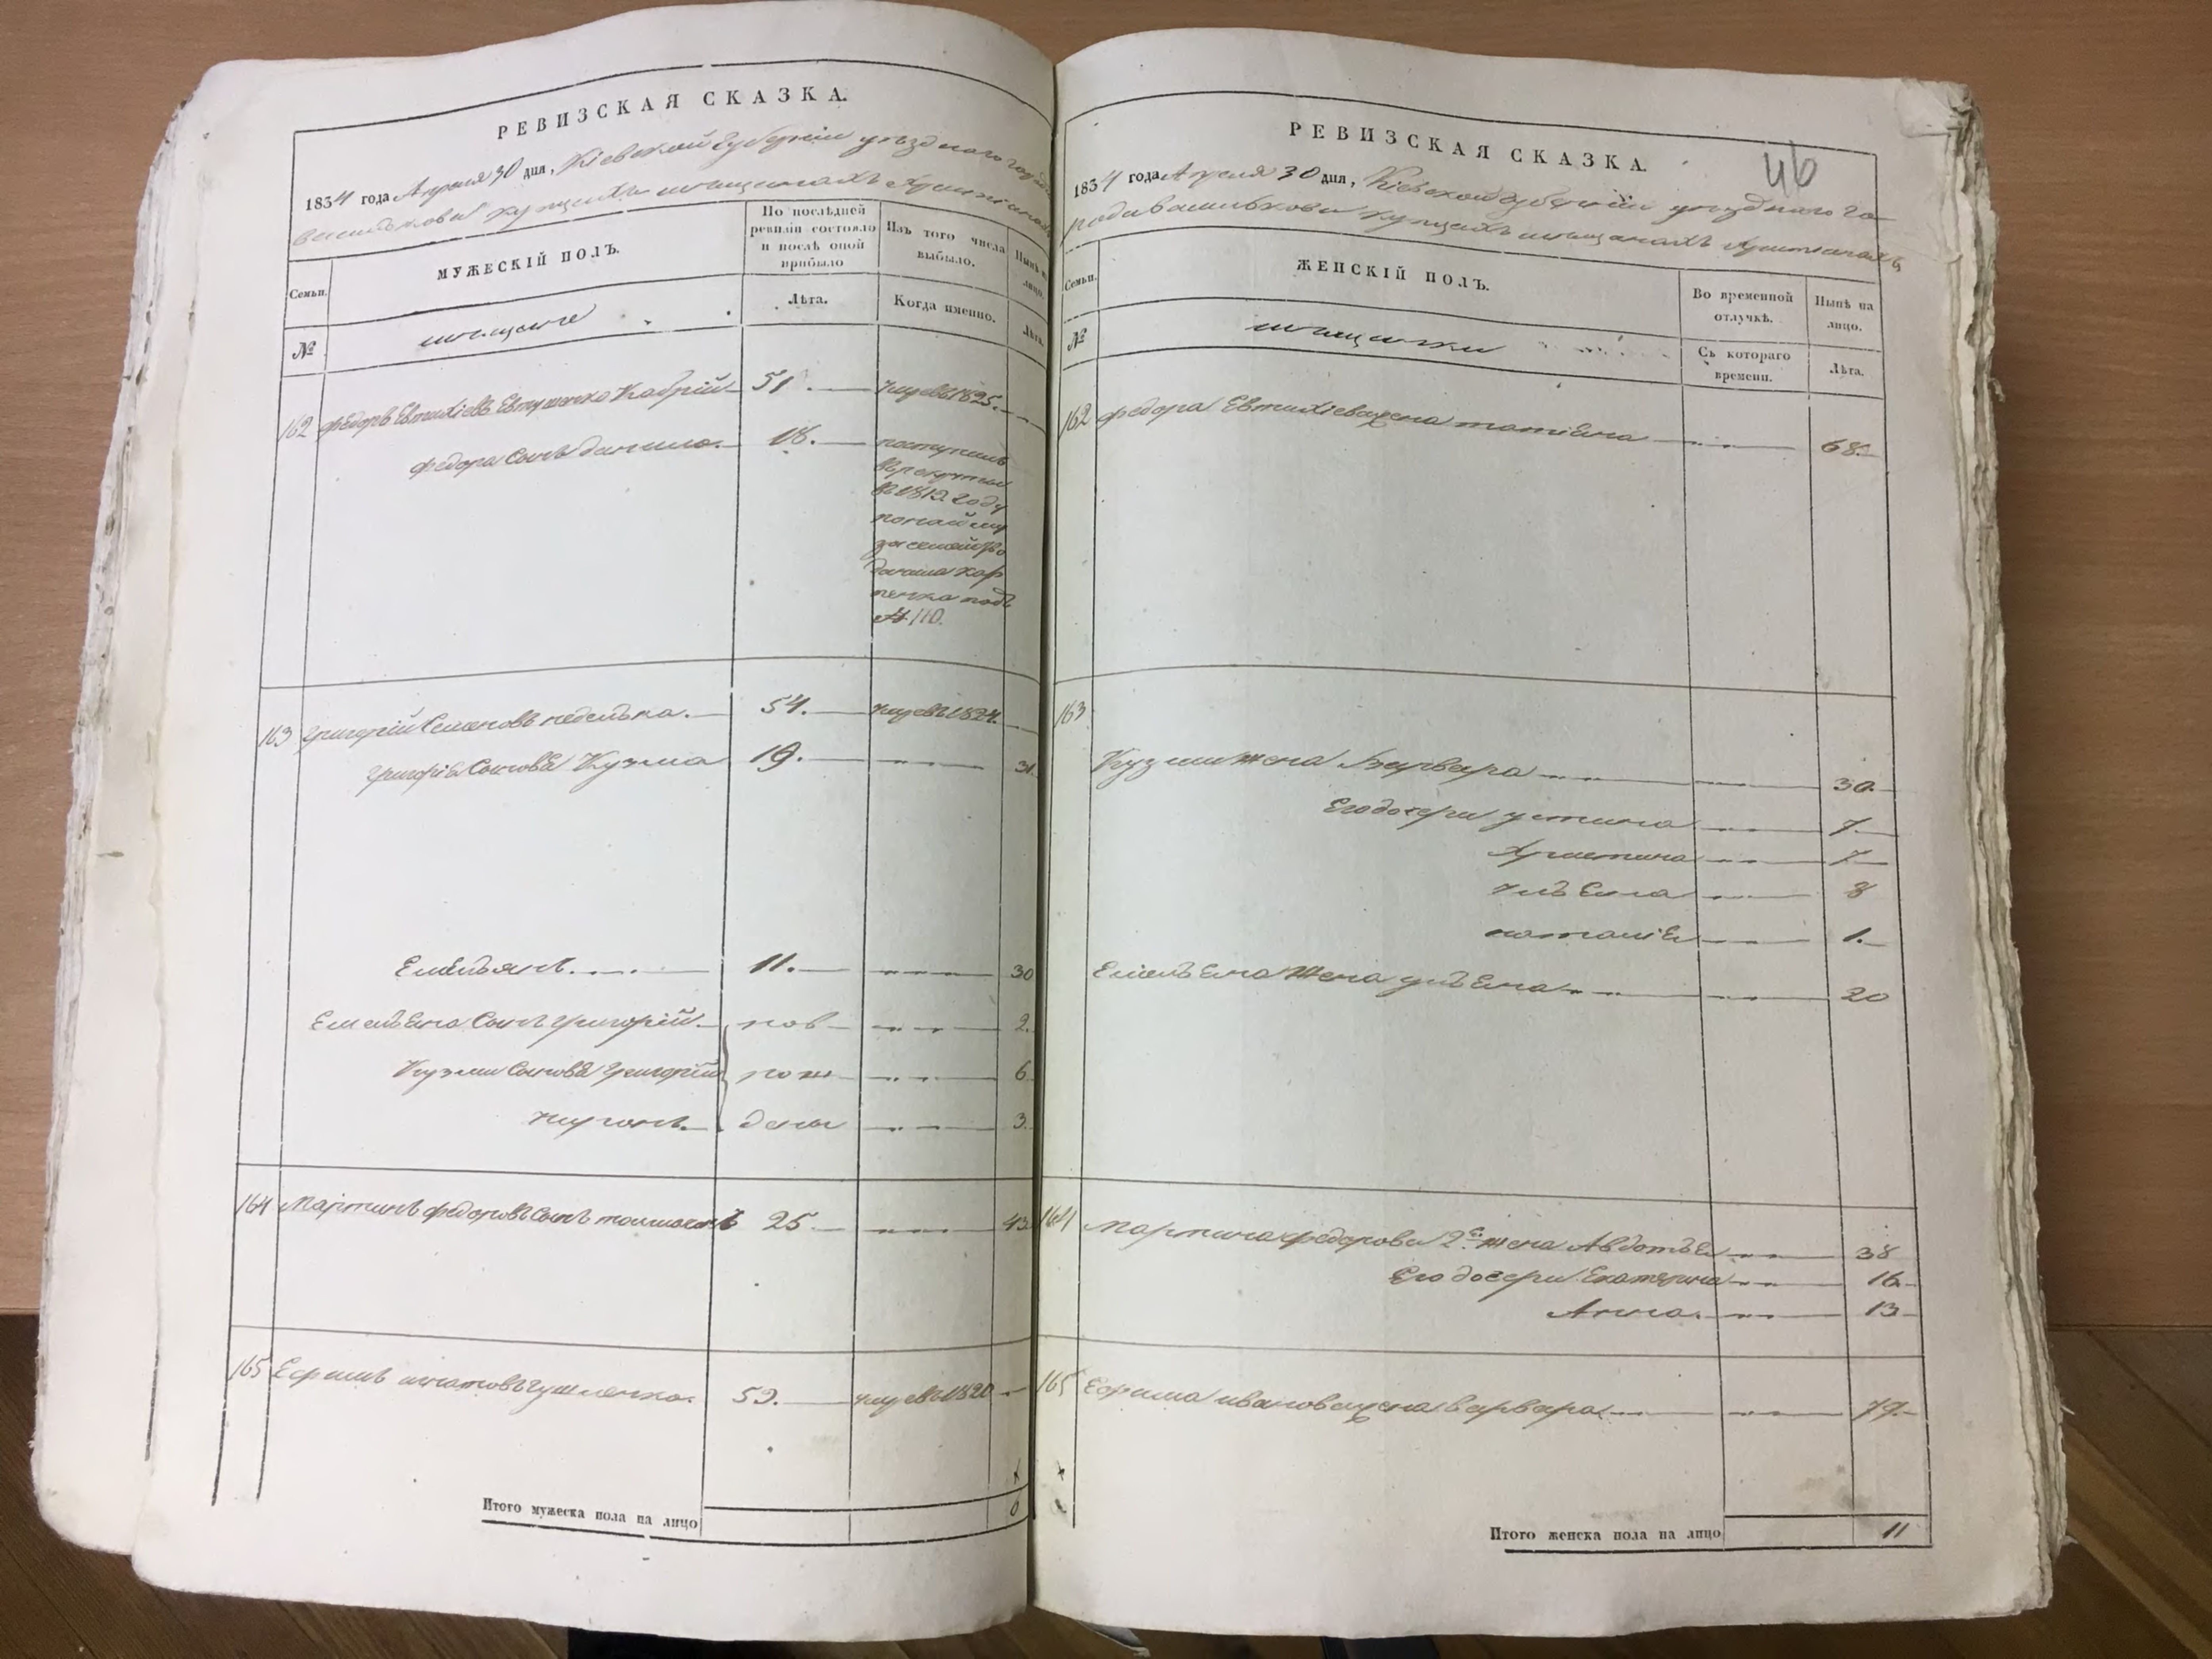 РЕВИЗСКАЯ СКАЗКА.
1834 года Апреля 30 дня, Кіевской Губерніи уѣзднаго города
василькова купцахъ мещанахъ христіанахъ
Семьи.
МУЖЕСКІЙ ПОЛЪ.
По послѣдней ревизіи состояло и послѣ оной прибыло
Изъ того числа выбыло.
Нынѣ на лицо.
№
мещане
Лѣта.
Когда именно.
Лѣта.
162 Федоръ Евтихіевъ Евтушенко 51. умре въ 1825.
Федора Сынъ данило. 18. поступилъ
в рекруты
в 1812 году
по найму
за семейство
под
№ 110.
163 Григорій Семеновъ неделька. 54. умре въ 1824.
Григорія Сыновья Кузма 19. 31.
Емельянъ. 11. 30
Емельяна Сынъ Григорій. нов 2.
Кузмы Сыновья Григорій рож 6.
дены 3.
164 Мартинъ федоровъ Сынъ 25. 43.
165 Ефимъ 59. умре въ 1820
Итого мужеска пола на лицо 6
46
РЕВИЗСКАЯ СКАЗКА.
1834 года Апреля 30 дня, Кіевской Губерніи уѣзднаго го
рода василькова купцахъ мещанахъ христіанахъ
Семьи.
ЖЕНСКІЙ ПОЛЪ.
Во временной отлучкѣ.
Нынѣ на лицо.
№
мещанки
Съ котораго времени.
Лѣта.
162 федора Евтихіева жена татіяна 68.
163
Кузмы жена Варвара 30.
Его дочери устина 7.
Христина 7
ульяна 3
наталія 1.
Емельяна жена ульяна 20
164 Мартина федорова 2я жена Авдотья 38
Его дочери Екатерина 16.
Анна. 13
165 Ефима иванова жена варвара 79.
Итого женска пола на лицо 11